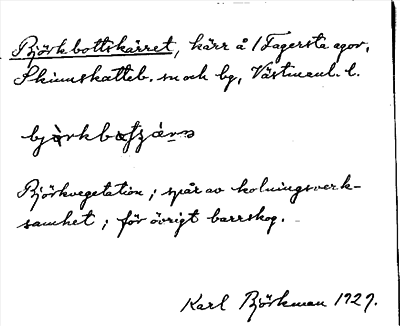 Björkbottskärret, kärr å /Fagersta egor,
Skinnskatteb. sn och bg, Västmanl. l.
Björkvegetation; spår av kolningsverk-
samhet; för övrigt barrskog.
Karl Björkman 1929.